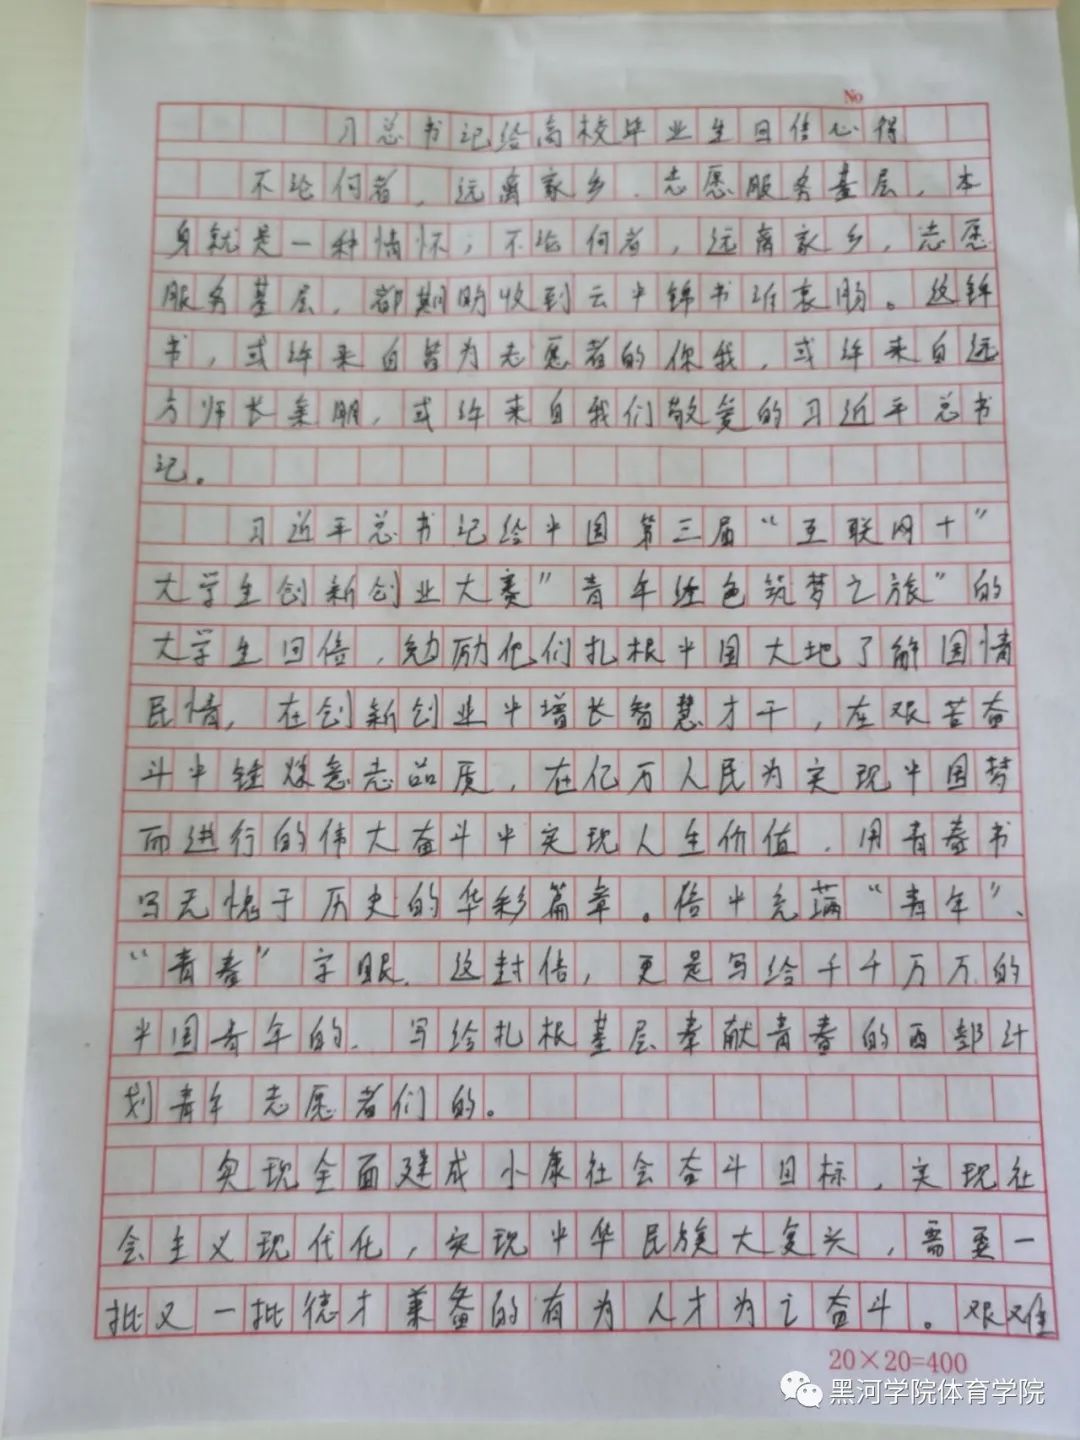 No
习总书记给高校毕业生回信心得
不论何者，远离家乡、志愿服务基层，本
身就是一种情怀；不论何者，远离家乡，志愿
服务基层，都期盼收到云中锦书谁衷肠。这锦
书，或许来自皆为志愿者的你我，或许来自远
方师长亲朋，或许来自我们敬爱的习近平总书
记。
习近平总书记给中国第三届“互联网十”
大学生创新创业大赛”青年红色筑梦之旅”的
大学生回信，勉励他们扎根中国大地了解国情
民情，在创新创业中增长智慧才干，在艰苦奋
斗中锤炼意志品质，在亿万人民为实现中国梦
而进行的伟大奋斗中实现人生价值，用青春书
写无愧于历史的华彩篇章。信中充满“青年”、
“青春”字眼．这封信，更是写给千千万万的
中国青年的、写给扎根基层奉献青春的西部计
划青年志愿者们的。
实现全面建成小康社会奋斗目标，实现社
会主义现代化，实现中华民族大复兴，需要一
批又一批德才兼备的有为人才为之奋斗。艰难
20×20=400
黑河学院体育学院